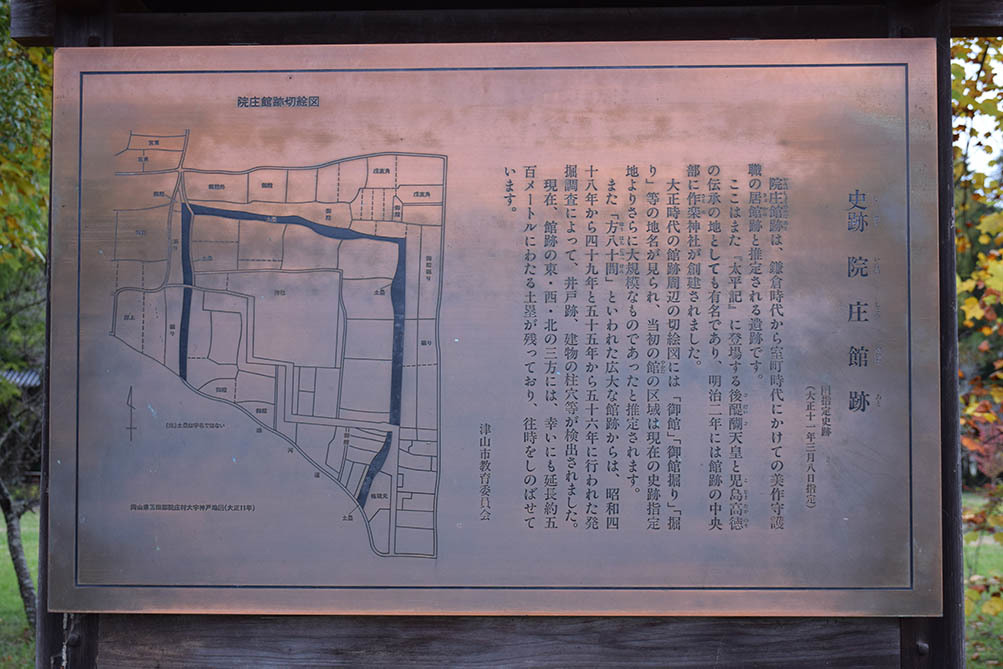 史跡 院庄館跡
国指定史跡
(大正十一年三月八日指定)
院庄館跡は、鎌倉時代から室町時代にかけての美作守護
職の居館跡と推定される遺跡です。
ここはまた『太平記』に登場する後醍醐天皇と児島高徳
の伝承の地としても有名であり、明治二年には館跡の中央
部に作楽神社が創建されました。
大正時代の館跡周辺の切絵図には「御館」「御館掘り」「掘
り」等の地名が見られ、当初の館の区域は現在の史跡指定
地よりさらに大規模なものであったと推定されます。
また「方八十間」といわれた広大な館跡からは、昭和四
十八年から四十九年と五十五年から五十六年に行われた発
掘調査によって、井戸跡、建物の柱穴等が検出されました。
現在、館跡の東・西・北の三方には、幸いにも延長約五
百メートルにわたる土塁が残っており、往時をしのばせて
います。
津山市教育委員会
院庄館跡切絵図
御館
戊亥角
戊亥角
御館
土塁
御館
土塁
土塁
御館掘り
掘り
掘り
掘り
御館
御館
土塁
(注)土塁は字名ではない
岡山県苫田郡院庄村大字神戸地図(大正11年)